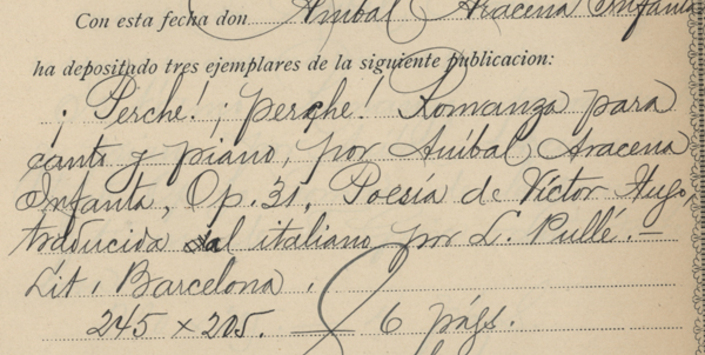 Con esta fecha don Anibal Aracena Infanta
ha depositado tres ejemplares de la siguiente publicacion:
¡Perche! ¡perche! Romanza para
canto y piano, por Aníbal Aracena
Infanta, Op. 31, Poesía de Víctor Hugo,
traducida al italiano por L. Pullé.—
Lit. Barcelona.
245 x 205. — 6 págs.